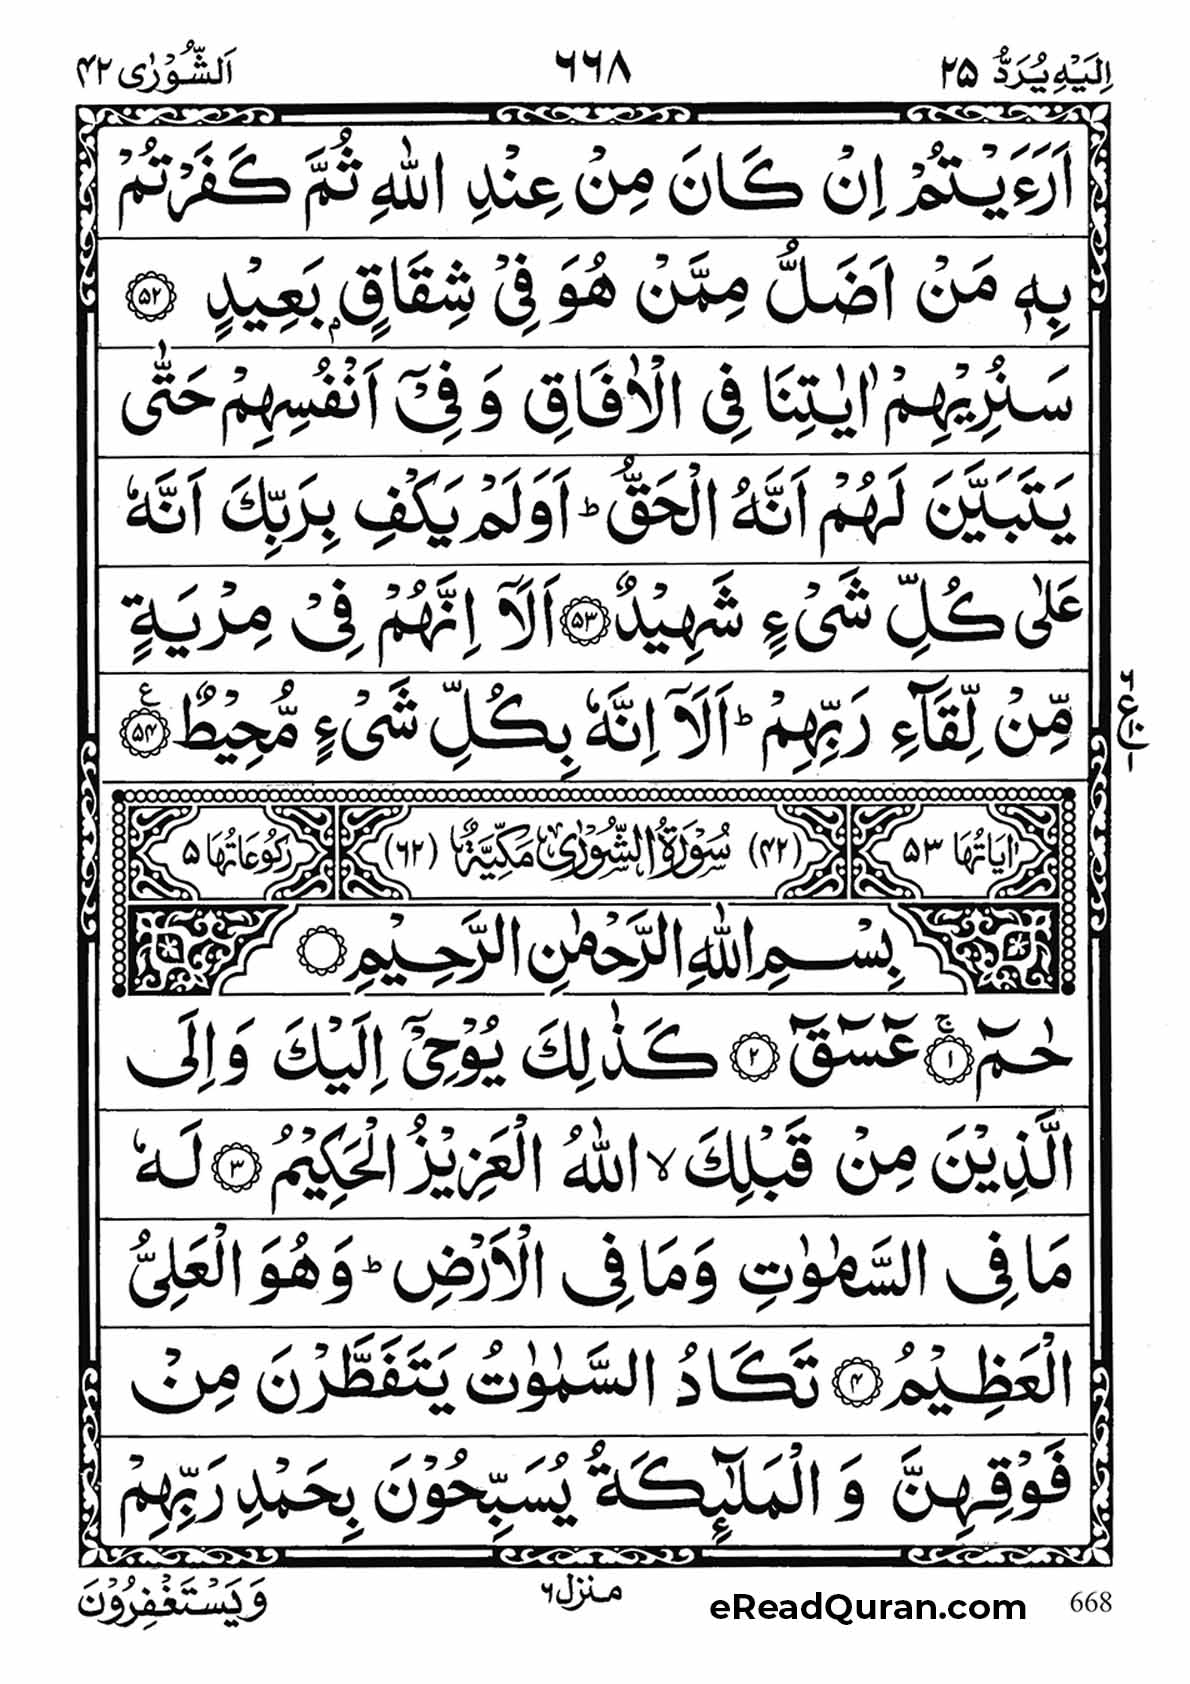 اِلَيْهِ يُرَدُّ ۲۵ ٦٦٨ اَلشُّوْرٰى ۴۲
اَرَءَيْتُمْ اِنْ كَانَ مِنْ عِنْدِ اللّٰهِ ثُمَّ كَفَرْتُمْ
بِهٖ مَنْ اَضَلُّ مِمَّنْ هُوَ فِيْ شِقَاقٍۭ بَعِيْدٍ ﴿۵۲﴾
سَنُرِيْهِمْ اٰيٰتِنَا فِي الْاٰفَاقِ وَ فِيْۤ اَنْفُسِهِمْ حَتّٰى
يَتَبَيَّنَ لَهُمْ اَنَّهُ الْحَقُّ ؕ اَوَلَمْ يَكْفِ بِرَبِّكَ اَنَّهٗ
عَلٰى كُلِّ شَيْءٍ شَهِيْدٌ ﴿۵۳﴾ اَلَاۤ اِنَّهُمْ فِيْ مِرْيَةٍ
مِّنْ لِّقَآءِ رَبِّهِمْ ؕ اَلَاۤ اِنَّهٗ بِكُلِّ شَيْءٍ مُّحِيْطٌ ﴿۵۴﴾ ع
اٰيَاتُهَا ۵۳ (۴۲) سُوْرَةُ الشُّوْرٰى مَكِّيَّةٌ (٦۲) رُكُوْعَاتُهَا ۵
بِسْمِ اللّٰهِ الرَّحْمٰنِ الرَّحِيْمِ
حٰمٓ ﴿۱﴾ ۚ عٓسٓقٓ ﴿۲﴾ كَذٰلِكَ يُوْحِيْۤ اِلَيْكَ وَ اِلَى
الَّذِيْنَ مِنْ قَبْلِكَ ۙ اللّٰهُ الْعَزِيْزُ الْحَكِيْمُ ﴿۳﴾ لَهٗ
مَا فِي السَّمٰوٰتِ وَمَا فِي الْاَرْضِ ؕ وَ هُوَ الْعَلِيُّ
الْعَظِيْمُ ﴿۴﴾ تَكَادُ السَّمٰوٰتُ يَتَفَطَّرْنَ مِنْ
فَوْقِهِنَّ وَ الْمَلٰٓئِكَةُ يُسَبِّحُوْنَ بِحَمْدِ رَبِّهِمْ
668 eReadQuran.com منزل ٦ وَ يَسْتَغْفِرُوْنَ